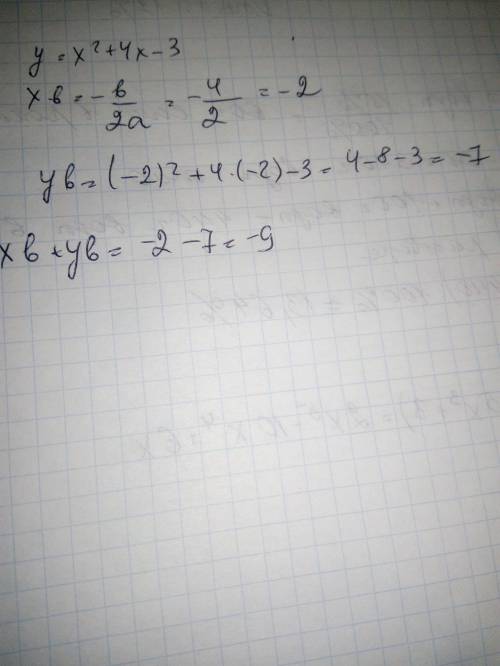 y = x² + 4x - 3
xв = -в/2a = -4/2 = -2
yв = (-2)² + 4·(-2) - 3 = 4 - 8 - 3 = -7
xв + yв = -2 - 7 = -9